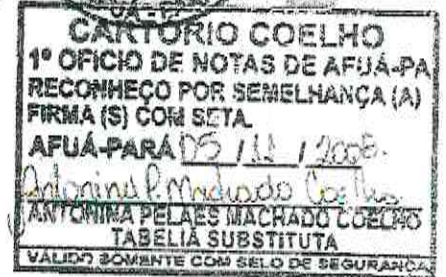 CARTÓRIO COELHO
1º OFICIO DE NOTAS DE AFUÁ-PA
RECONHEÇO POR SEMELHANÇA (A)
FIRMA (S) COM SETA.
AFUÁ-PARÁ 05 / 11 / 2008.
Antonina P. Machado Coelho
ANTONINA PELAES MACHADO COELHO
TABELIÃ SUBSTITUTA
VALIDO SOMENTE COM SELO DE SEGURANÇA